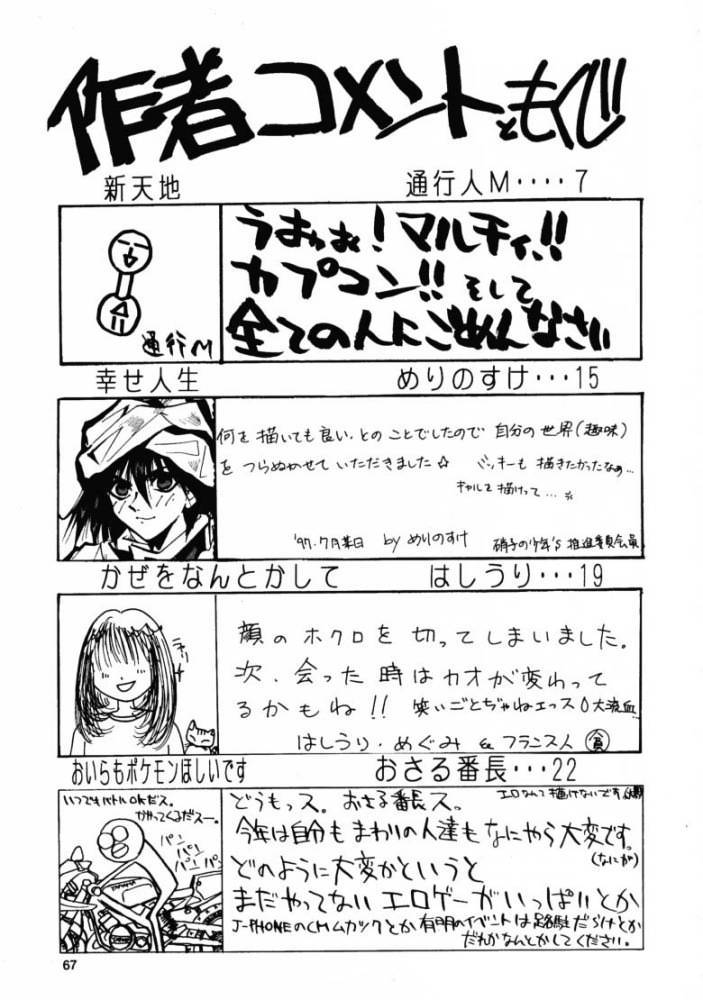 作者コメントともくじ
新天地 通行人M‥‥7
通行人M
うおぉぉ!マルチィ!!
カプコン!!そして
全ての人にごめんなさい
幸せ人生 めりのすけ‥‥15
何を描いても良い、とのことでしたので 自分の世界(趣味)
をつらぬかせていただきました☆ バッキーも描きたかったなぁ…
ギャルで描けって…
'97.7月某日 by めりのすけ 硝子の少年's 推進委員会員
かぜをなんとかして はしうり‥‥19
チリッ
顔のホクロを切ってしまいました。
次、会った時はカオが変わって
るかもね!! 笑いごとぢゃねエっス 大流血
はしうり・めぐみ & フランス人 貧
おいらもポケモンほしいです おさる番長‥‥22
いつでもバトルOKだス。
かかってくるだスー。
パン
パパン
パパンパン
どうもっス。おさる番長ス。 エロなんて描けないです
今年は自分もまわりの人達もなにやら大変です。
(なにが)
どのように大変かというと
まだやってないエロゲーがいっぱいとか
J-PHONEのCMムカツクとか有明のイベントは路駐だらけとか
だれかなんとかしてください。
67